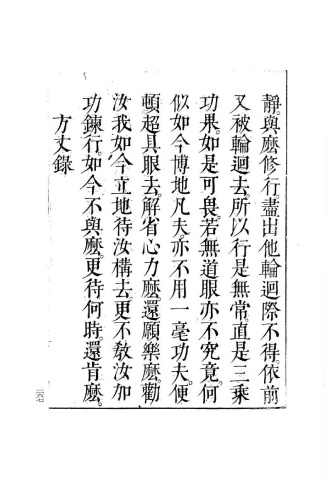 靜與麽修行盡出他輪迴際不得依前
又被輪迴去。所以行是無常直是三乘
功果。如是可畏。若無道眼亦不究竟。何
似如今博地凡夫亦不用一毫功夫。便
頓超具眼去。解省心力麽。還願樂麽。勸
汝。我如今立地待汝構去。更不敎汝加
功鍊行。如今不與麽。更待何時。還肯麽。
方丈錄
二六七